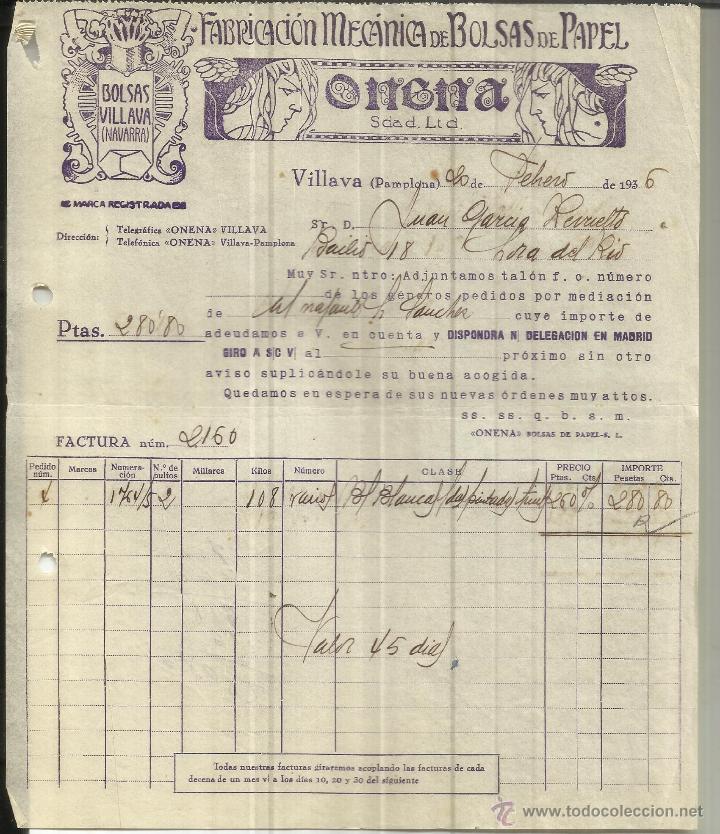 FABRICACIÓN MECÁNICA DE BOLSAS DE PAPEL
BOLSAS
VILLAVA
(NAVARRA)
ONENA
Sdad. Ltd.
MARCA REGISTRADA
Villava (Pamplona) 20 de Febrero de 1936
Dirección:
Telegráfica «ONENA» VILLAVA
Telefónica «ONENA» Villava-Pamplona
Sr. D. Juan Garcia
18 Lora del Rio
Muy Sr. ntro: Adjuntamos talón f. c. número
de los géneros pedidos por mediación
de Sanchez cuyo importe de
Ptas. 280'80
adeudamos a V. en cuenta y DISPONDRA N/ DELEGACION EN MADRID
GIRO A SC V/ al próximo sin otro
aviso suplicándole su buena acogida.
Quedamos en espera de sus nuevas órdenes muy attos.
ss. ss. q. b. s. m.
«ONENA» BOLSAS DE PAPEL-S. L.
FACTURA núm. 2160
Pedido núm. Marcas Numeración N.º de bultos Millares Kilos Número CLASE PRECIO Ptas. Cts. IMPORTE Pesetas Cts.
1764/5 2 108 varios Bl Blancas 260 % 280 80
Valor 45 dias
Todas nuestras facturas giraremos acoplando las facturas de cada
decena de un mes v/ a los días 10, 20 y 30 del siguiente
www.todocoleccion.net